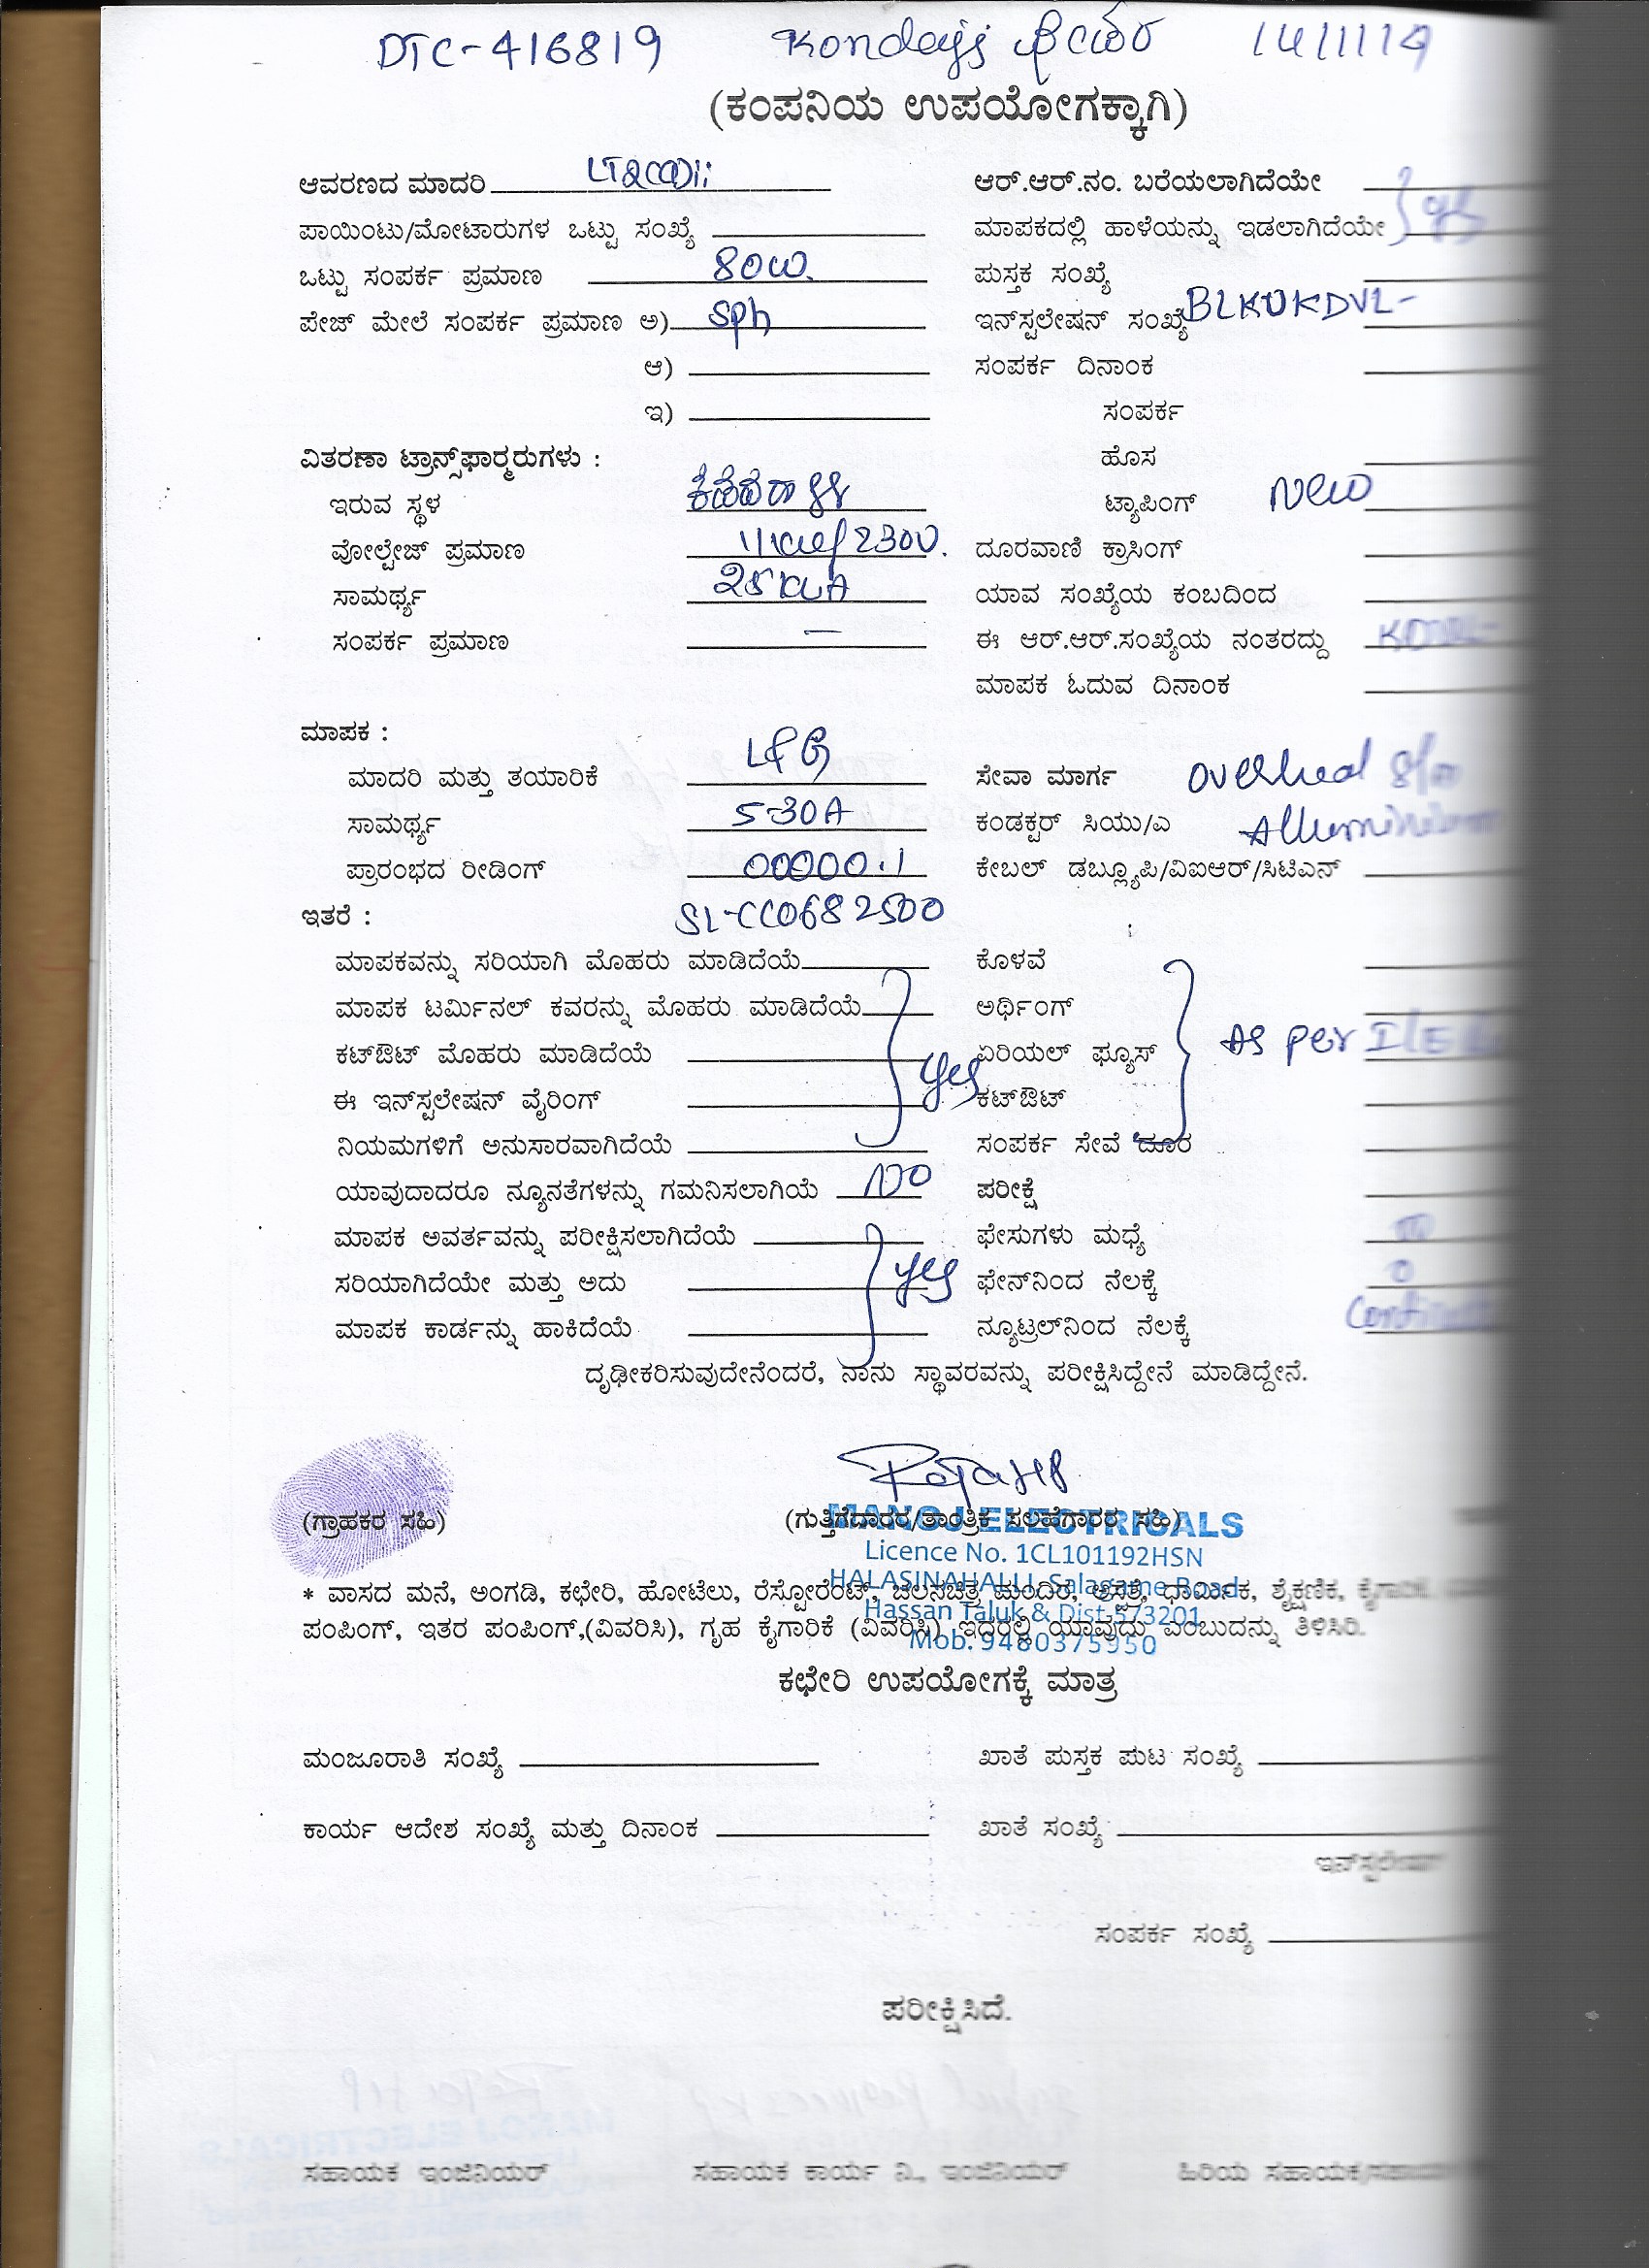 DTC-416819 14/11/19
(ಕಂಪನಿಯ ಉಪಯೋಗಕ್ಕಾಗಿ)
ಆವರಣದ ಮಾದರಿ ಆರ್.ಆರ್.ನಂ. ಬರೆಯಲಾಗಿದೆಯೇ
ಪಾಯಿಂಟು/ಮೋಟಾರುಗಳ ಒಟ್ಟು ಸಂಖ್ಯೆ ಮಾಪಕದಲ್ಲಿ ಹಾಳೆಯನ್ನು ಇಡಲಾಗಿದೆಯೇ yes
ಒಟ್ಟು ಸಂಪರ್ಕ ಪ್ರಮಾಣ 80W. ಪುಸ್ತಕ ಸಂಖ್ಯೆ
ಪೇಜ್ ಮೇಲೆ ಸಂಪರ್ಕ ಪ್ರಮಾಣ ಅ) Sph ಇನ್‌ಸ್ಟಲೇಷನ್ ಸಂಖ್ಯೆ BLKUKDVL-
ಆ) ಸಂಪರ್ಕ ದಿನಾಂಕ
ಇ) ಸಂಪರ್ಕ
ವಿತರಣಾ ಟ್ರಾನ್ಸ್‌ಫಾರ್ಮರುಗಳು : ಹೊಸ
ಇರುವ ಸ್ಥಳ ಟ್ಯಾಪಿಂಗ್ New
ವೋಲ್ಟೇಜ್ ಪ್ರಮಾಣ 11kv/230V. ದೂರವಾಣಿ ಕ್ರಾಸಿಂಗ್
ಸಾಮರ್ಥ್ಯ 25 KVA ಯಾವ ಸಂಖ್ಯೆಯ ಕಂಬದಿಂದ
ಸಂಪರ್ಕ ಪ್ರಮಾಣ — ಈ ಆರ್.ಆರ್.ಸಂಖ್ಯೆಯ ನಂತರದ್ದು
ಮಾಪಕ ಓದುವ ದಿನಾಂಕ
ಮಾಪಕ :
ಮಾದರಿ ಮತ್ತು ತಯಾರಿಕೆ L&G ಸೇವಾ ಮಾರ್ಗ overhead
ಸಾಮರ್ಥ್ಯ 5-30A ಕಂಡಕ್ಟರ್ ಸಿಯು/ಎ
ಪ್ರಾರಂಭದ ರೀಡಿಂಗ್ 00000.1 ಕೇಬಲ್ ಡಬ್ಲ್ಯೂಪಿ/ವಿಐಆರ್/ಸಿಟಿಎನ್
ಇತರೆ : SL-CC0682500
ಮಾಪಕವನ್ನು ಸರಿಯಾಗಿ ಮೊಹರು ಮಾಡಿದೆಯೆ ಕೊಳವೆ
ಮಾಪಕ ಟರ್ಮಿನಲ್ ಕವರನ್ನು ಮೊಹರು ಮಾಡಿದೆಯೆ ಅರ್ಥಿಂಗ್
ಕಟ್‌ಔಟ್ ಮೊಹರು ಮಾಡಿದೆಯೆ yes ಏರಿಯಲ್ ಫ್ಯೂಸ್ As per
ಈ ಇನ್‌ಸ್ಟಲೇಷನ್ ವೈರಿಂಗ್ ಕಟ್‌ಔಟ್
ನಿಯಮಗಳಿಗೆ ಅನುಸಾರವಾಗಿದೆಯೆ ಸಂಪರ್ಕ ಸೇವೆ ದೂರ
ಯಾವುದಾದರೂ ನ್ಯೂನತೆಗಳನ್ನು ಗಮನಿಸಲಾಗಿಯೆ NO ಪರೀಕ್ಷೆ
ಮಾಪಕ ಅವರ್ತವನ್ನು ಪರೀಕ್ಷಿಸಲಾಗಿದೆಯೆ ಫೇಸುಗಳು ಮಧ್ಯೆ
ಸರಿಯಾಗಿದೆಯೇ ಮತ್ತು ಅದು yes ಫೇನ್‌ನಿಂದ ನೆಲಕ್ಕೆ
ಮಾಪಕ ಕಾರ್ಡನ್ನು ಹಾಕಿದೆಯೆ ನ್ಯೂಟ್ರಲ್‌ನಿಂದ ನೆಲಕ್ಕೆ
ದೃಢೀಕರಿಸುವುದೇನೆಂದರೆ, ನಾನು ಸ್ಥಾವರವನ್ನು ಪರೀಕ್ಷಿಸಿದ್ದೇನೆ ಮಾಡಿದ್ದೇನೆ.
(ಗ್ರಾಹಕರ ಸಹಿ) (ಗುತ್ತಿಗೆದಾರರ/ತಾಂತ್ರಿಕ ಸಲಹೆಗಾರರ ಸಹಿ)
MANOJ ELECTRICALS
Licence No. 1CL101192HSN
HALASINAHALLI, Salagame Road
Hassan Taluk & Dist-573201
Mob. 9480375950
* ವಾಸದ ಮನೆ, ಅಂಗಡಿ, ಕಛೇರಿ, ಹೋಟೆಲು, ರೆಸ್ಟೋರೆಂಟ್, ಚಲನಚಿತ್ರ ಮಂದಿರ, ಆಸ್ಪತ್ರೆ, ಧಾರ್ಮಿಕ, ಶೈಕ್ಷಣಿಕ,
ಪಂಪಿಂಗ್, ಇತರ ಪಂಪಿಂಗ್,(ವಿವರಿಸಿ), ಗೃಹ ಕೈಗಾರಿಕೆ (ವಿವರಿಸಿ) ಇದರಲ್ಲಿ ಯಾವುದು ಎಂಬುದನ್ನು ತಿಳಿಸಿರಿ.
ಕಛೇರಿ ಉಪಯೋಗಕ್ಕೆ ಮಾತ್ರ
ಮಂಜೂರಾತಿ ಸಂಖ್ಯೆ ಖಾತೆ ಪುಸ್ತಕ ಪುಟ ಸಂಖ್ಯೆ
ಕಾರ್ಯ ಆದೇಶ ಸಂಖ್ಯೆ ಮತ್ತು ದಿನಾಂಕ ಖಾತೆ ಸಂಖ್ಯೆ
ಇನ್‌ಸ್ಟಲೇಷನ್
ಸಂಪರ್ಕ ಸಂಖ್ಯೆ
ಪರೀಕ್ಷಿಸಿದೆ.
ಸಹಾಯಕ ಇಂಜಿನಿಯರ್ ಸಹಾಯಕ ಕಾರ್ಯ ನಿ., ಇಂಜಿನಿಯರ್ ಹಿರಿಯ ಸಹಾಯಕ/